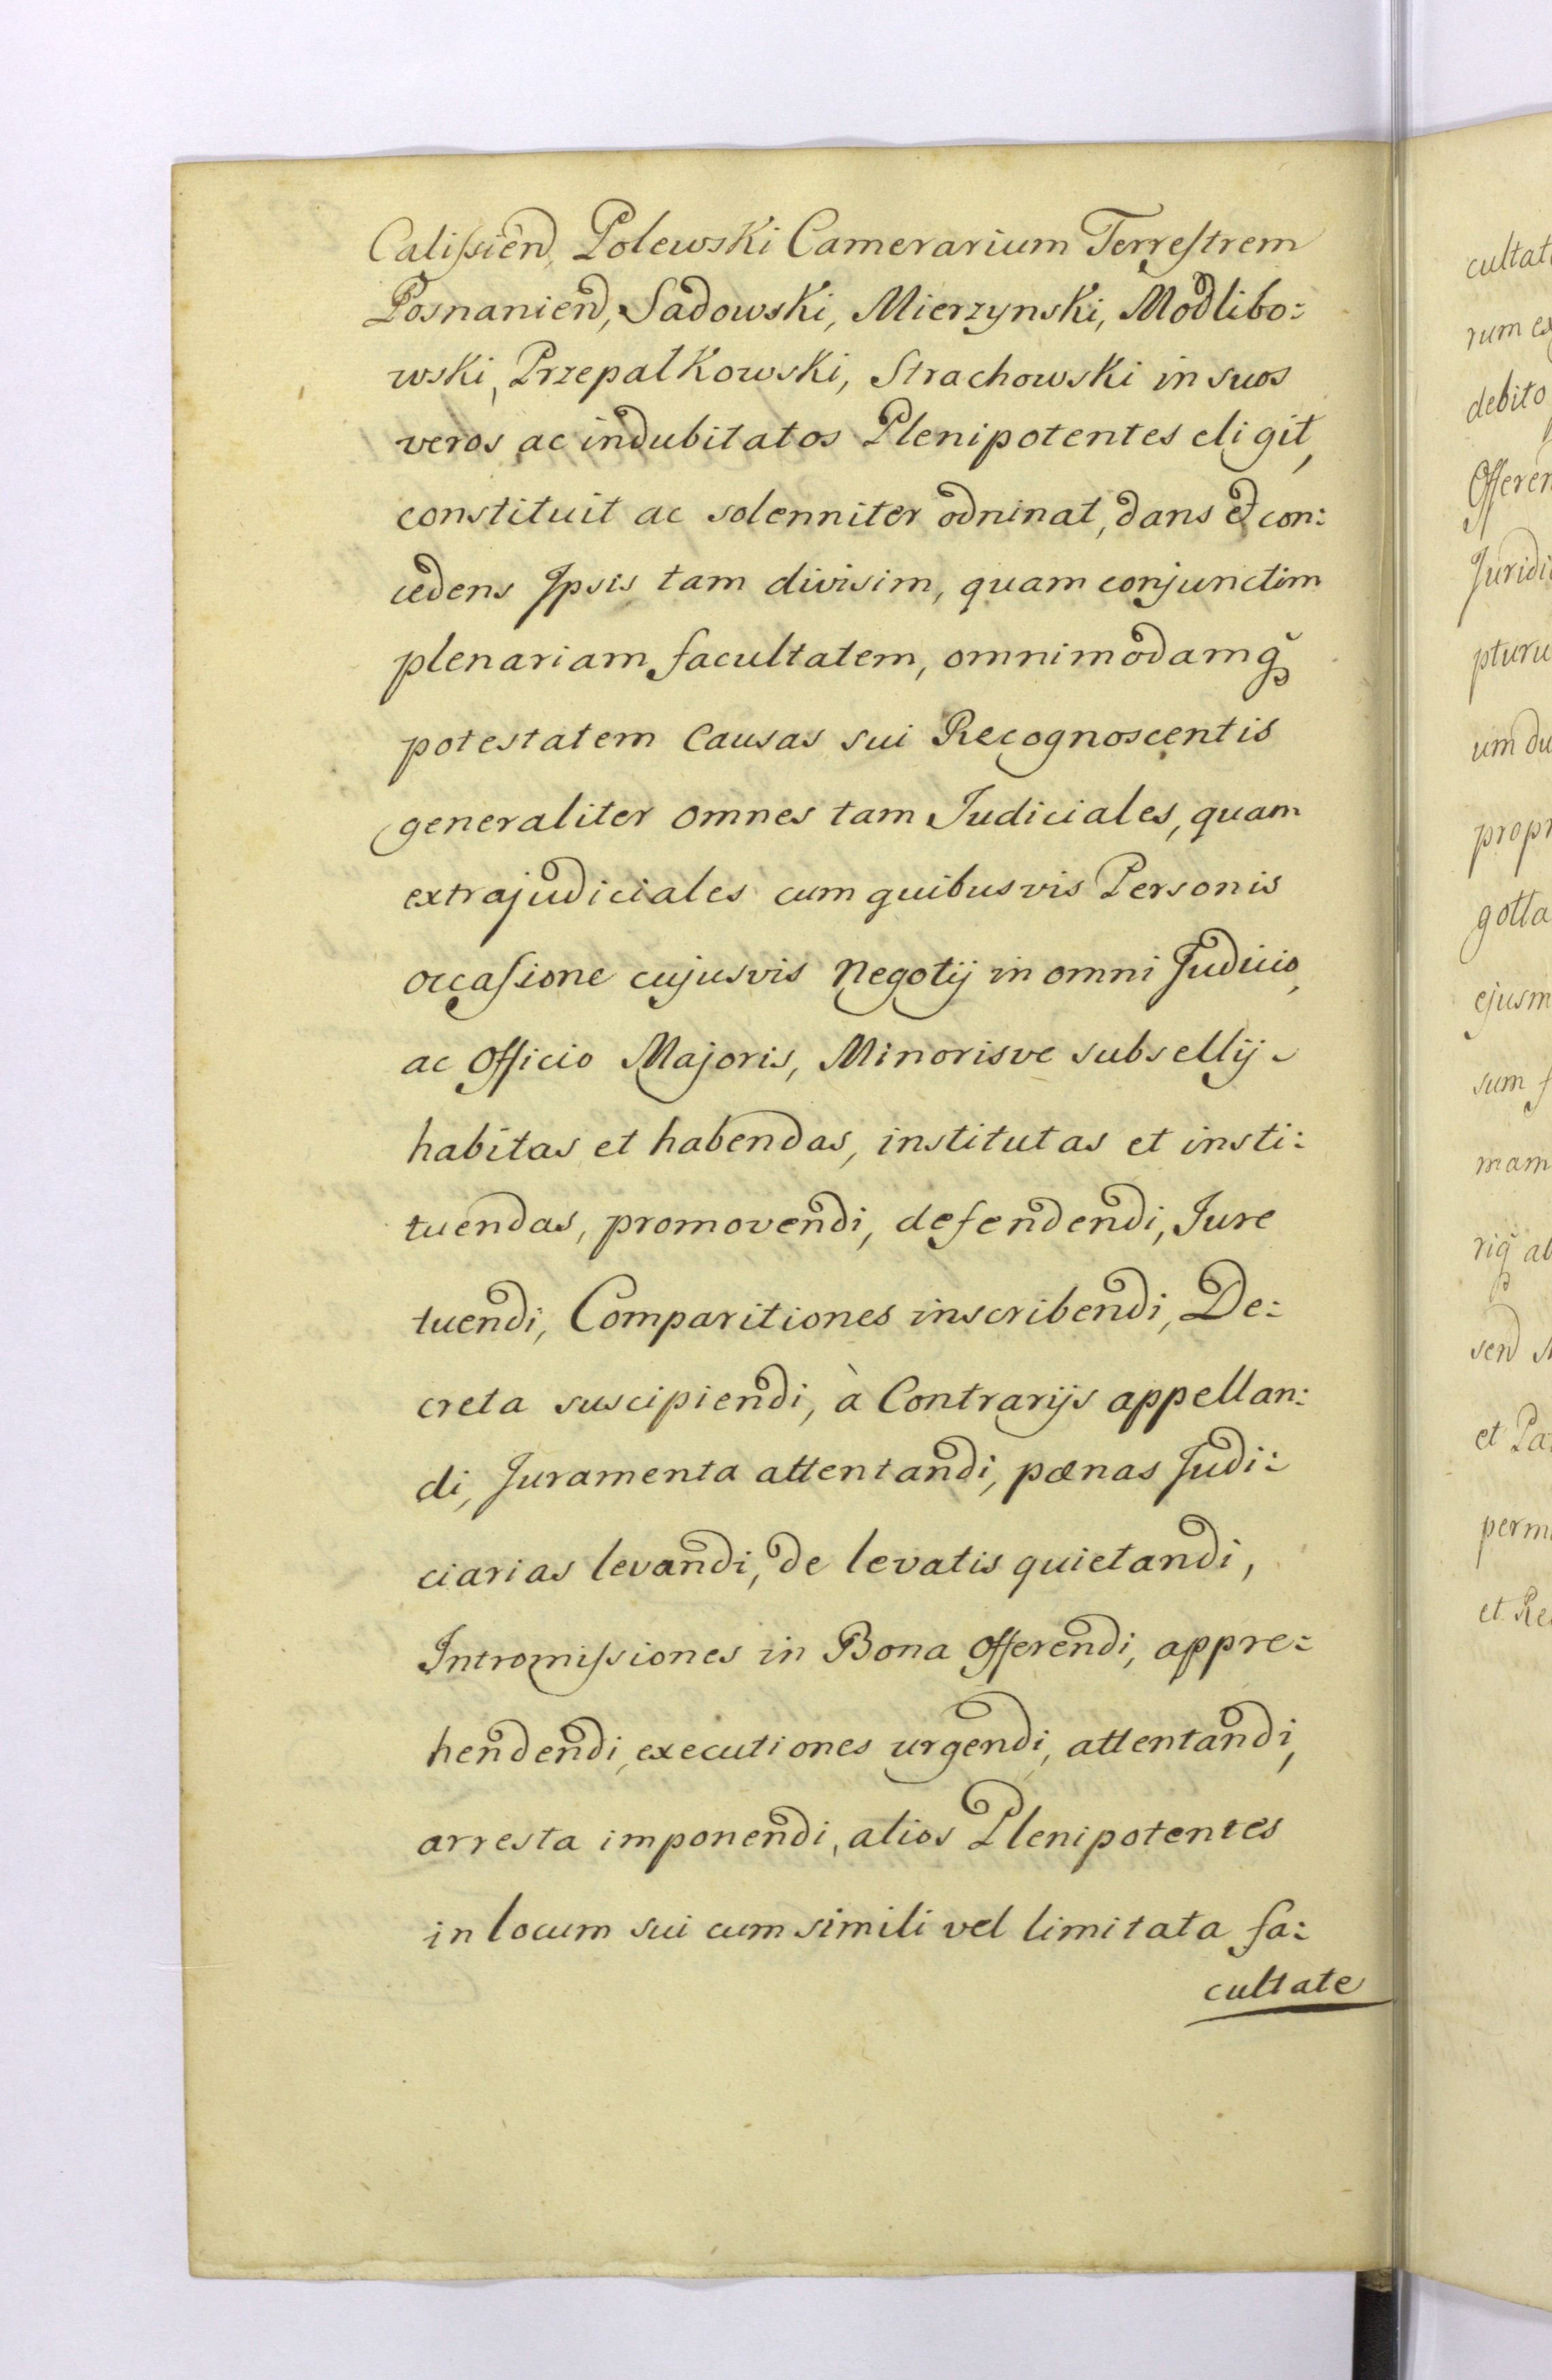 Calissień Polewski Camerarium Terrestrem
Posnanień, Sadowski, Mierzynski, Modlibo:
wski, Przepałkowski, Strachowski in suos
veros ac indubitatos Plenipotentes eligit,
constituit ac solenniter odninat, dans et con:
cedens Ipsis tam divisim, quam conjunctim
plenariam facultatem, omnimodamq̃
potestatem Causas sui Recognoscentis
generaliter omnes tam Judiciales, quam
extrajudiciales cum quibusvis Personis
occasione cujusvis Negotij in omni Judicio,
ac Officio Majoris, Minorisve subsellij
habitas et habendas, institutas et insti:
tuendas, promovendi, defendendi, Jure
tuendi, Comparitiones inscribendi, De:
creta suscipiendi, à Contrarijs appellan:
di, Juramenta attentandi, pœnas Judi:
ciarias levandi, de levatis quietandi,
Intromissiones in Bona Offerendi, appre:
hendendi, executiones urgendi, attentandi,
arresta imponendi, alios Plenipotentes
in locum sui cum simili vel limitata fa:
cultate
cultat
rum ex
debito
Offeren
Juridi
pturu
um du
propr
gotta
ejusm
sum f
mam
riq̃ ab
et Pa
perm
et Re